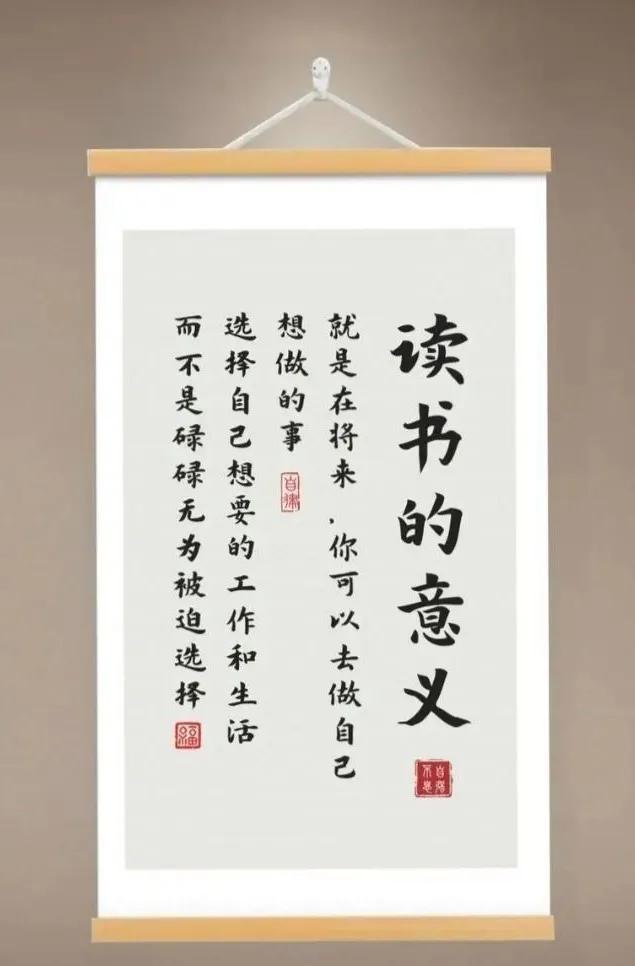 读书的意义
就是在将来，你可以去做自己
想做的事
选择自己想要的工作和生活
而不是碌碌无为被迫选择
自律
福